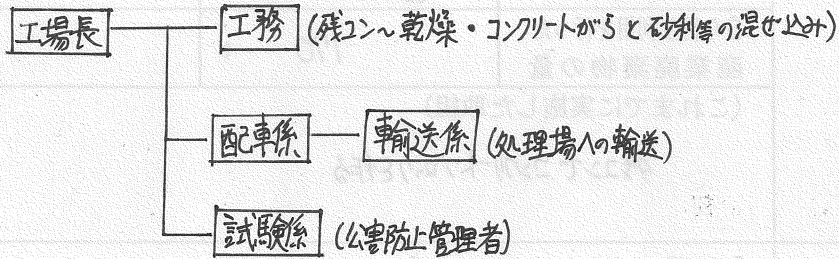 工場長 工務 (残コン～乾燥・コンクリートがらと砂利等の混ぜ込み)
配車係 輸送係 (処理場への輸送)
試験係 (公害防止管理者)